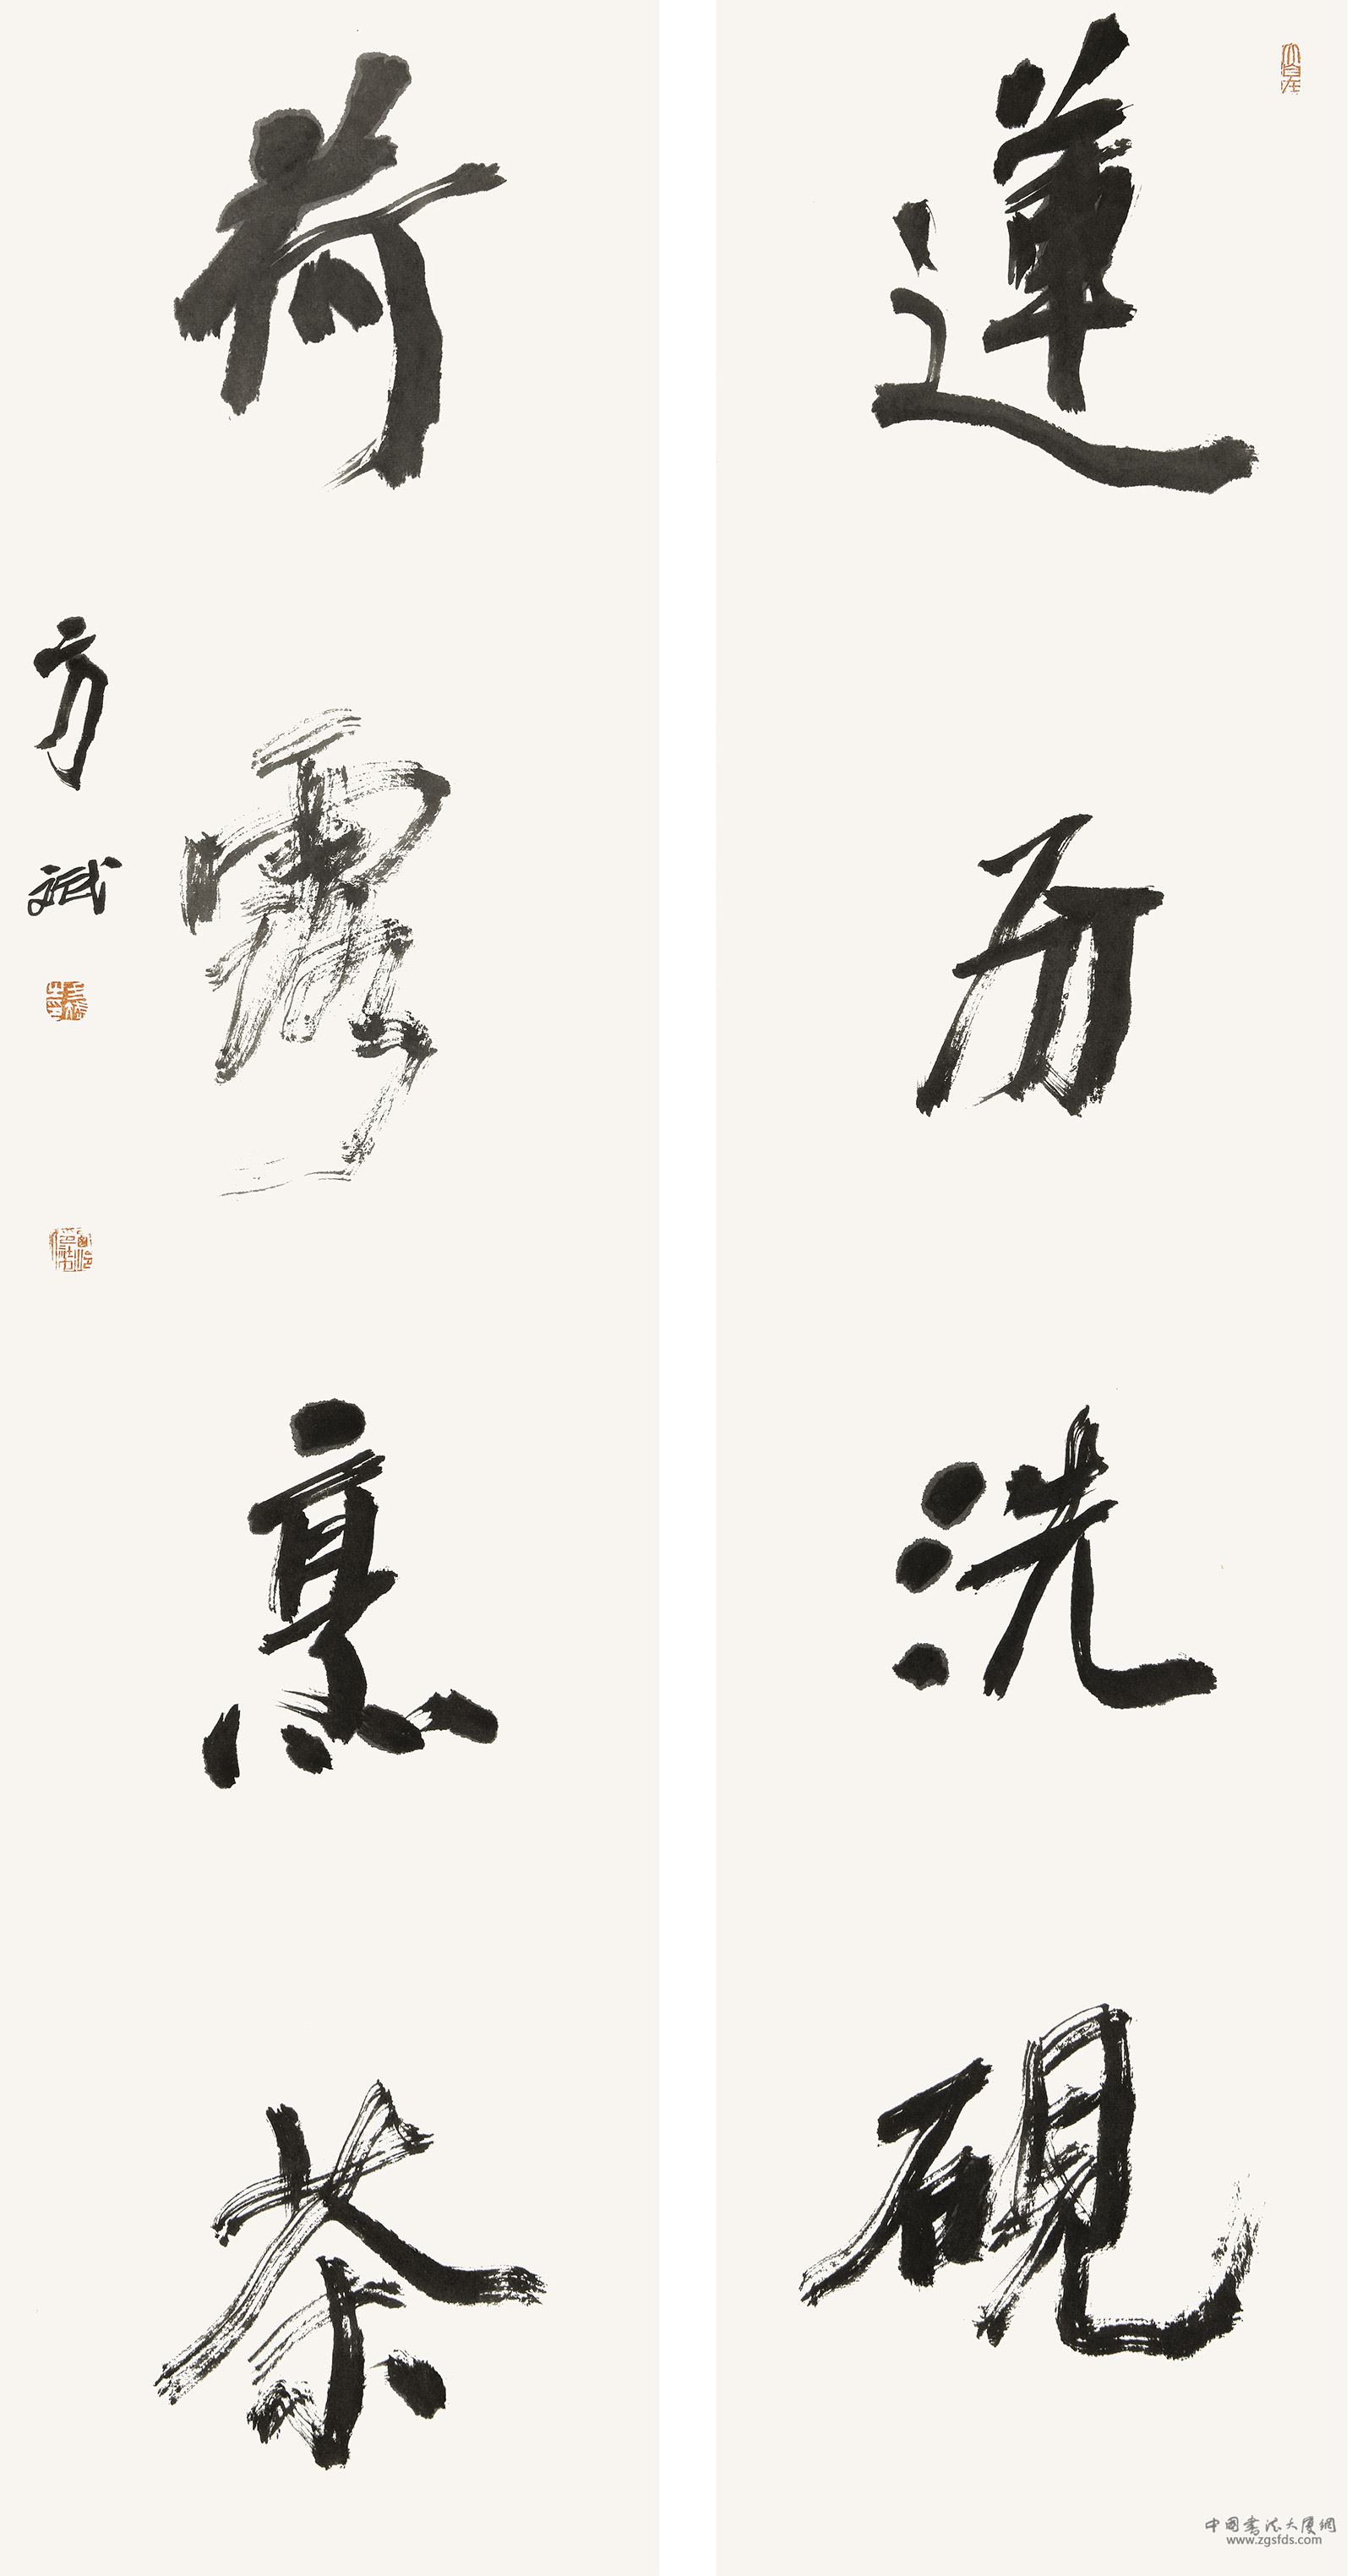 蓮房洗硯
荷露烹茶
方斌
大自在
中国書法大厦網
www.zgsfds.com